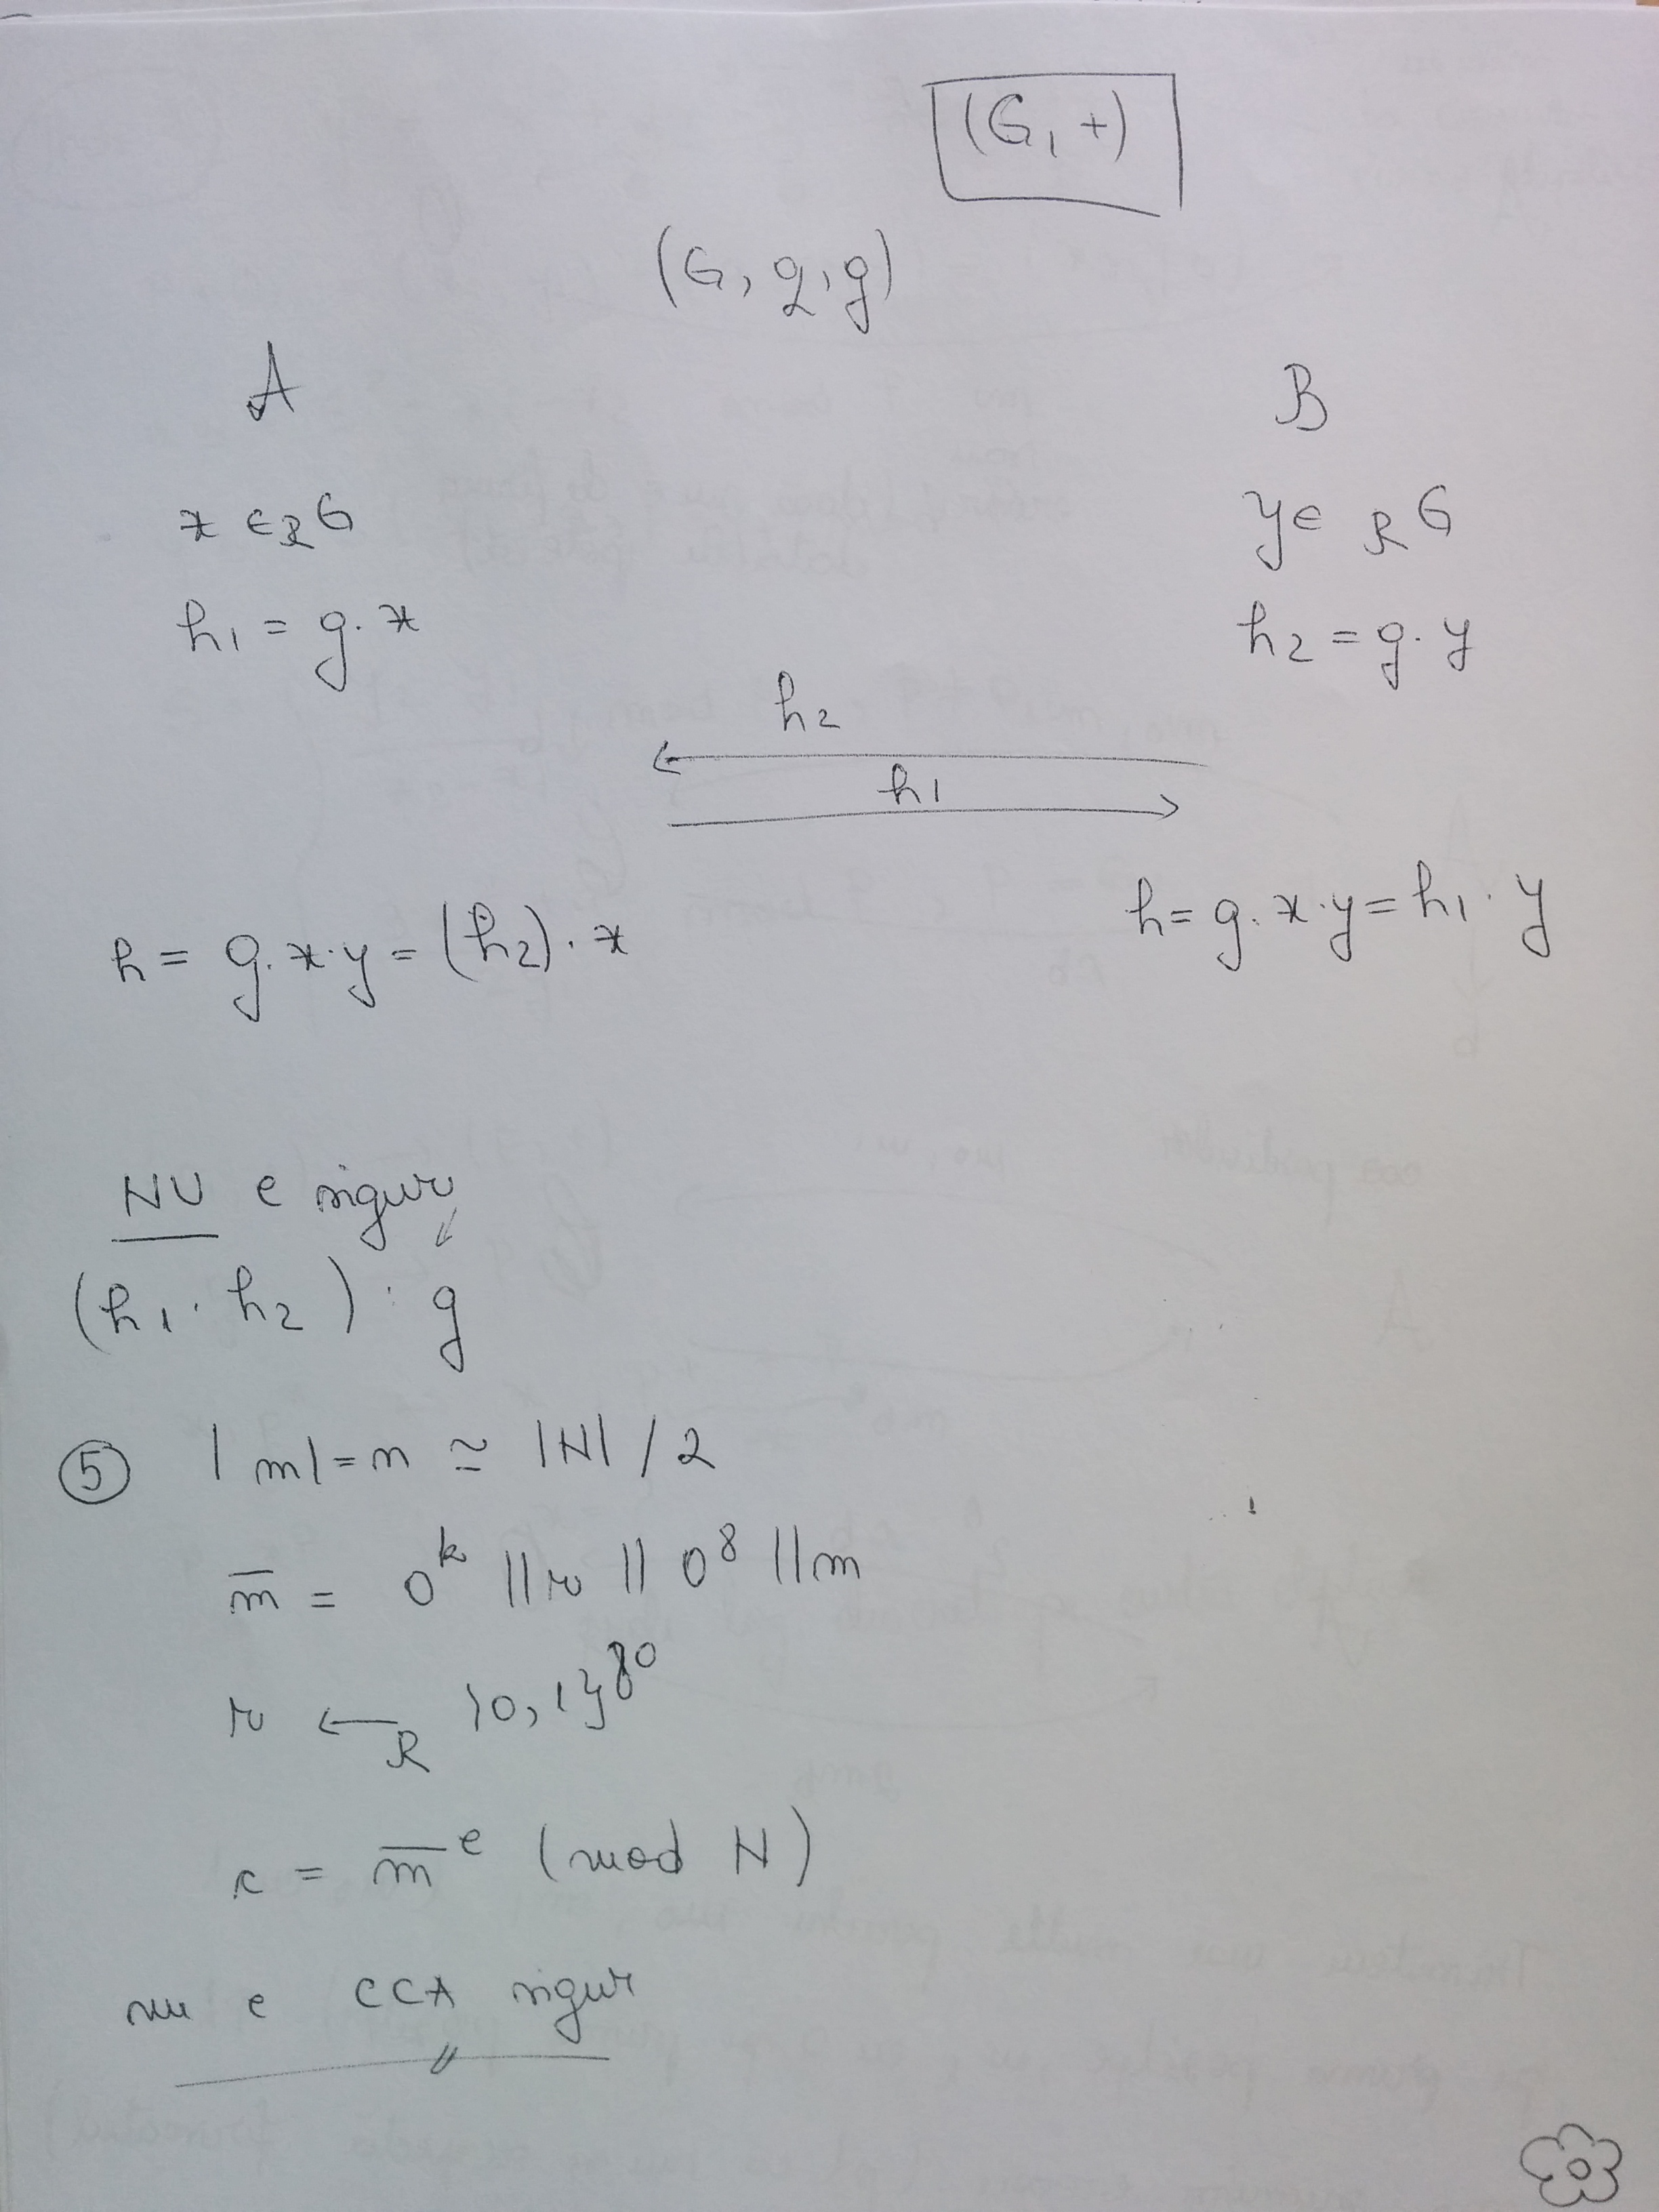 (G, +)
(G, q, g)
A
B
x ∈R G
y ∈ R G
h1 = g·x
h2 = g·y
h2
h1
h = g·x·y = (h2)·x
h = g·x·y = h1·y
NU e sigur
(h1 · h2) : g
⑤ |m| = n ≃ |N| / 2
m̅ = 0^k || r || 0^8 || m
r ←R {0,1}^80
c = m̅^e (mod N)
nu e CCA sigur